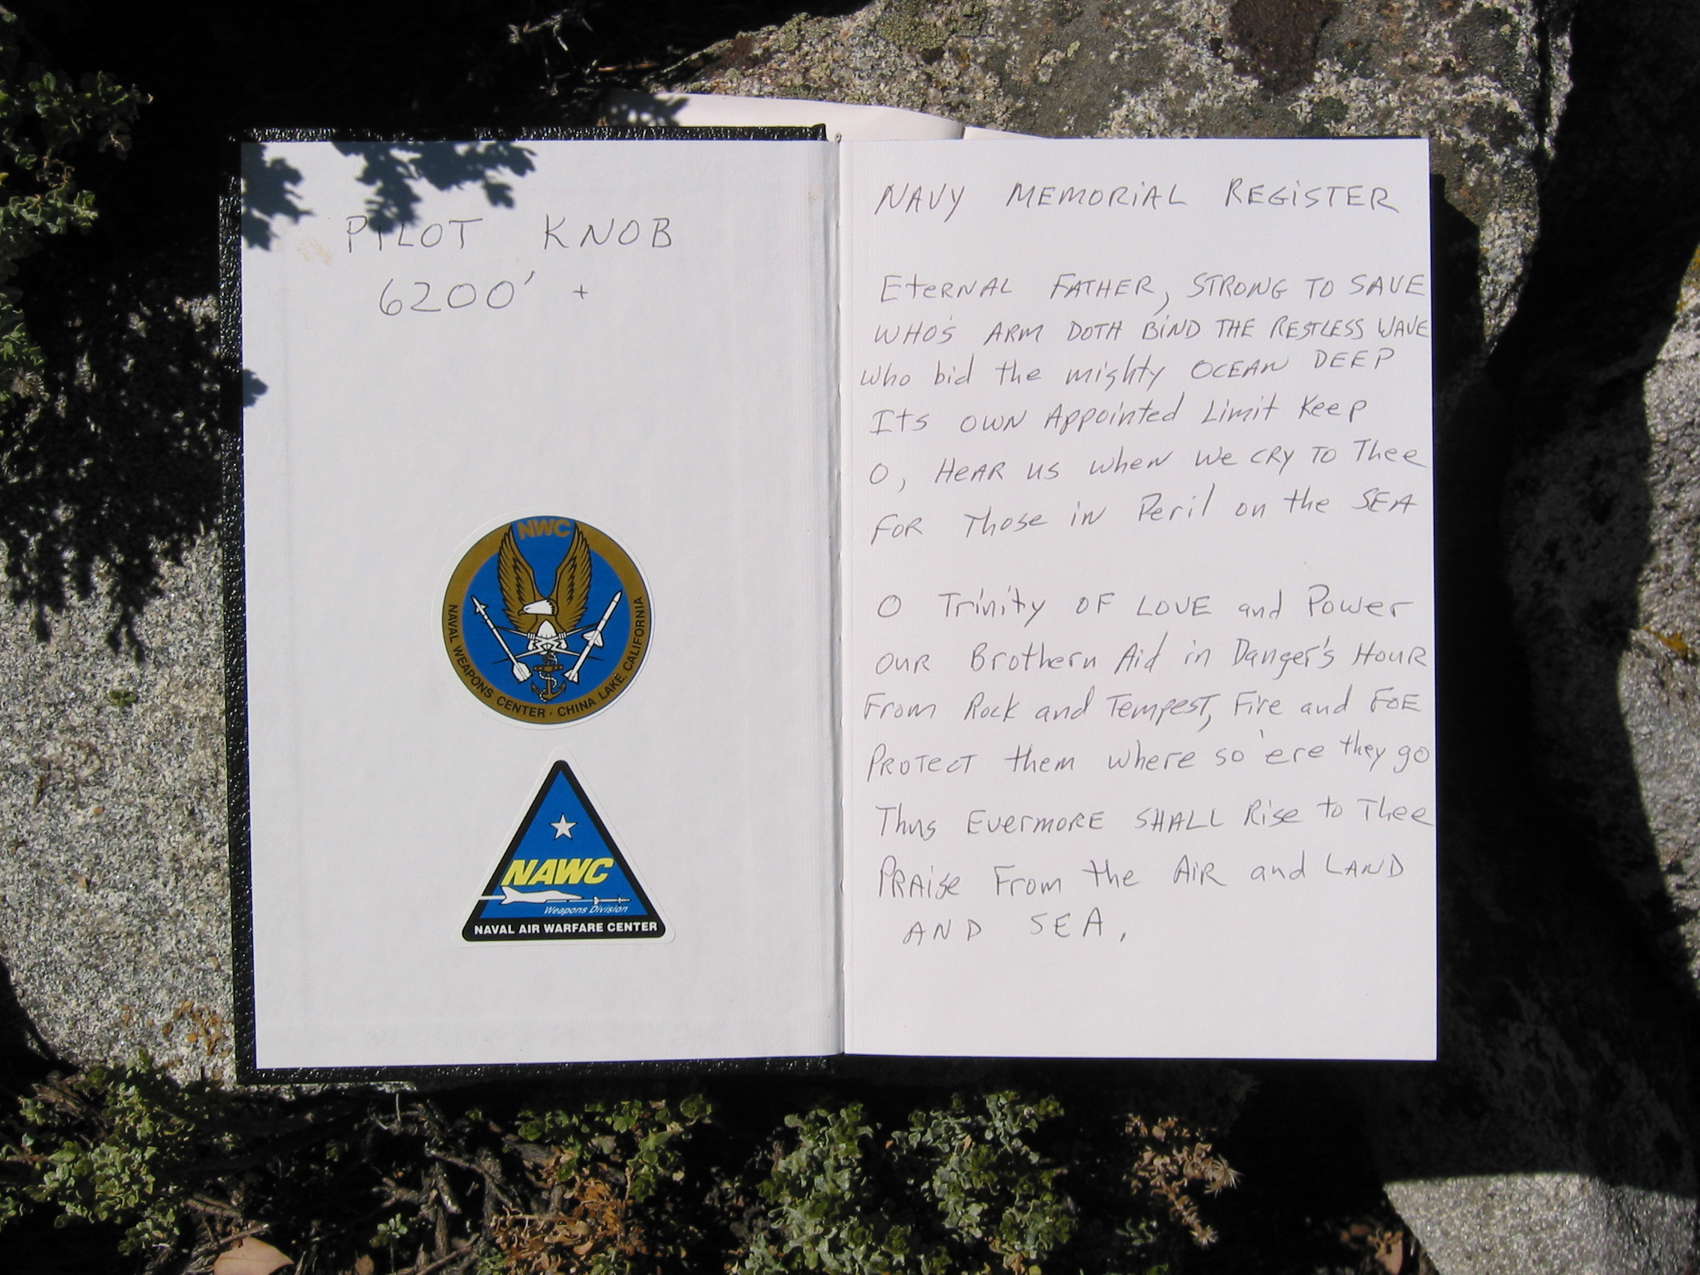 PILOT KNOB
6200' +
NWC
NAVAL WEAPONS CENTER · CHINA LAKE, CALIFORNIA
NAWC
Weapons Division
NAVAL AIR WARFARE CENTER
NAVY MEMORIAL REGISTER
ETERNAL FATHER, STRONG TO SAVE
WHO'S ARM DOTH BIND THE RESTLESS WAVE
Who bid the mighty OCEAN DEEP
Its OWN Appointed Limit Keep
O, HEAR US when We CRY TO Thee
FOR Those in Peril on the SEA
O Trinity OF LOVE and Power
OUR Brothern Aid in Danger's HOUR
From Rock and Tempest, Fire and FOE
PROTECT them where so'ere they go
Thus EverMORE SHALL Rise to Thee
PRAise From the AIR and LAND
AND SEA.